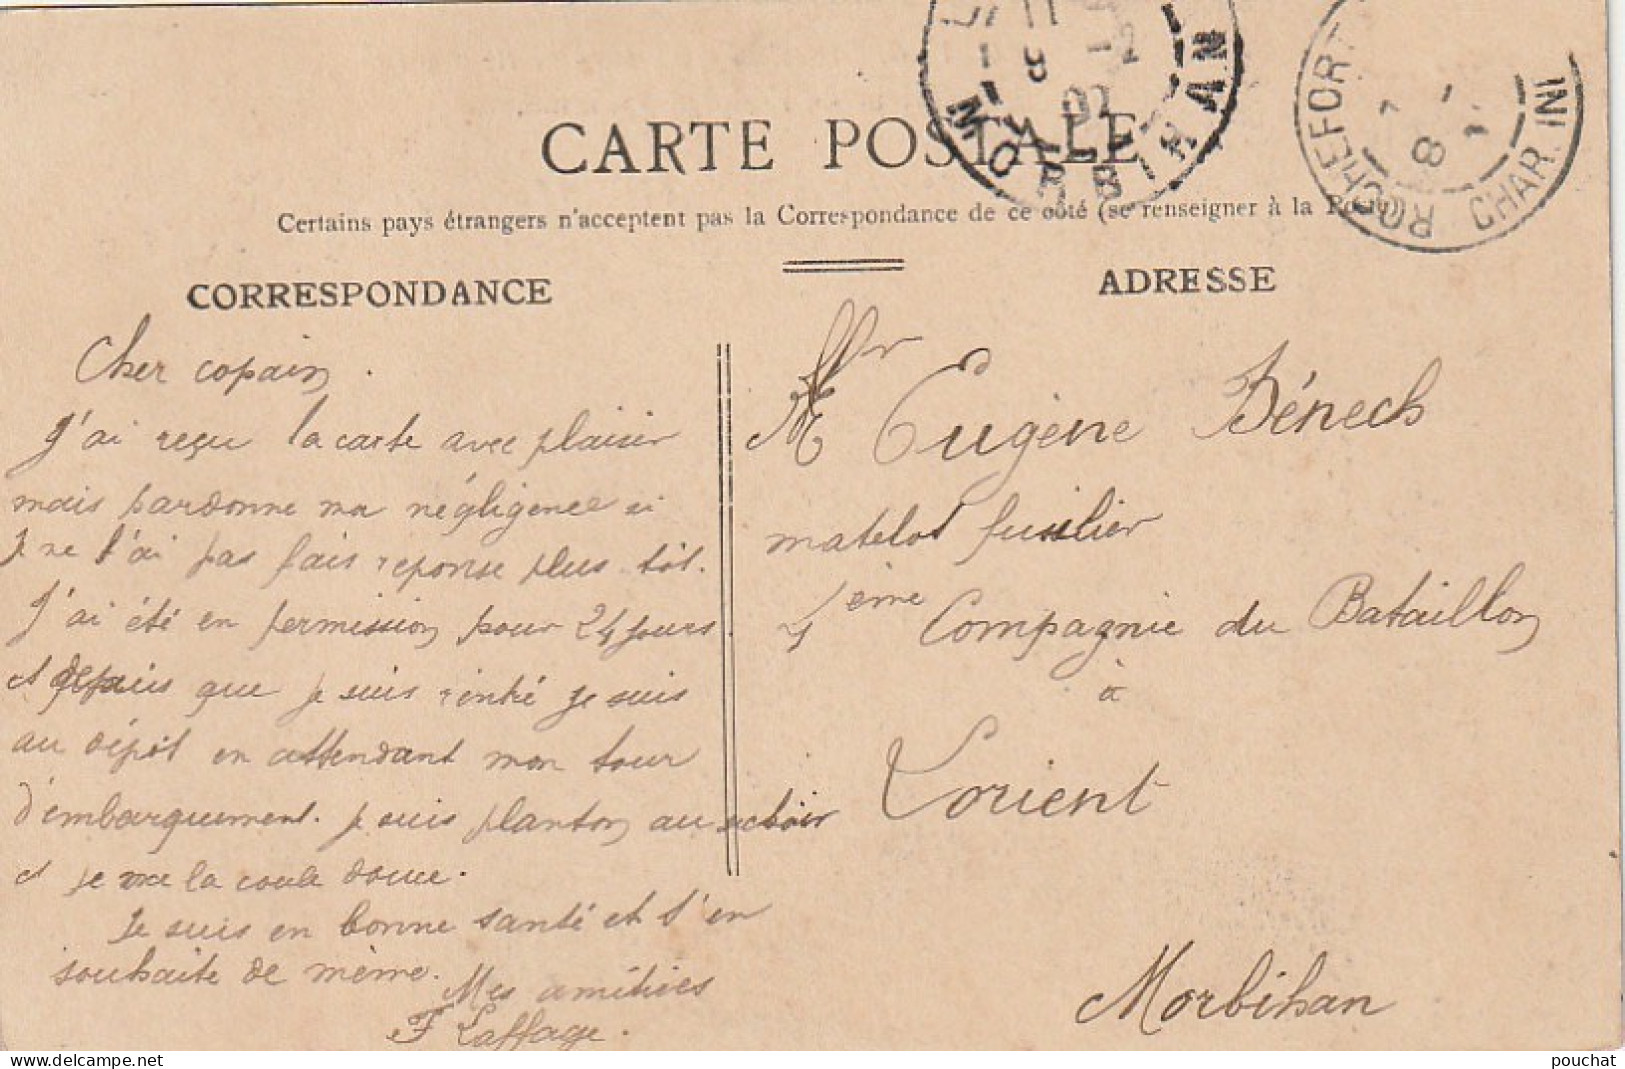 MORBIHAN
ROCHEFORT CHAR. IN
CARTE POSTALE
Certains pays étrangers n'acceptent pas la Correspondance de ce côté (se renseigner à la Poste)
CORRESPONDANCE
Cher copain.
J'ai reçu ta carte avec plaisir
mais pardonne ma négligence si
je ne t'ai pas fais reponse plus tôt.
J'ai été en permission pour 24 jours
et depuis que je suis rentré je suis
au dépôt en attendant mon tour
d'embarquement. je suis planton au
et je me la coule douce.
Je suis en bonne santé et t'en
souhaite de même.
Mes amitiées
F Laffage.
ADRESSE
Mr Eugène Bénech
matelot fusilier
4ème Compagnie du Bataillon
à
Lorient
Morbihan
pouchat